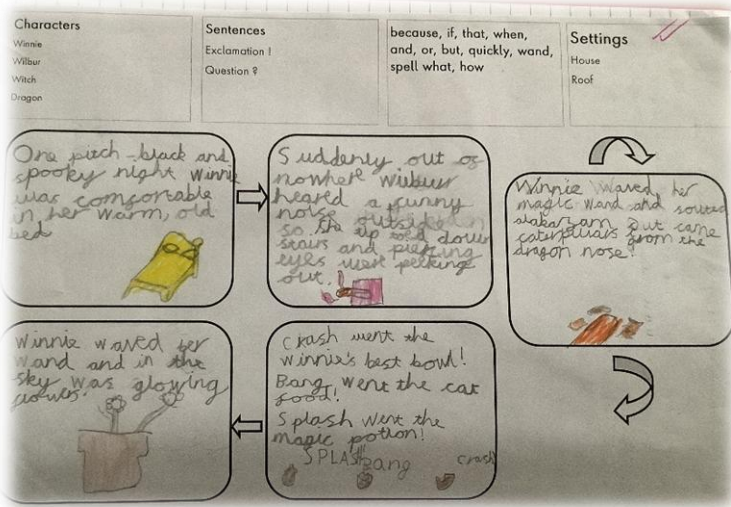 Characters
Winnie
Wilbur
Witch
Dragon
Sentences
Exclamation !
Question ?
because, if, that, when,
and, or, but, quickly, wand,
spell what, how
Settings
House
Roof
One pitch-black and
spooky night Winnie
was comfortable
in her warm, old
bed
Suddenly out of
nowhere Wilbur
heared a funny
noise outside
so he
down
stairs and
eyes were peeking
out.
Winnie Waved her
magic wand and
alakazam out came
from the
dragon nose!
Crash went the
winnie's best bowl!
Bang, went the cat
food!
Splash went the
magic potion!
SPLASH
Bang
crash
Winnie waved her
wand and in the
sky was glowing